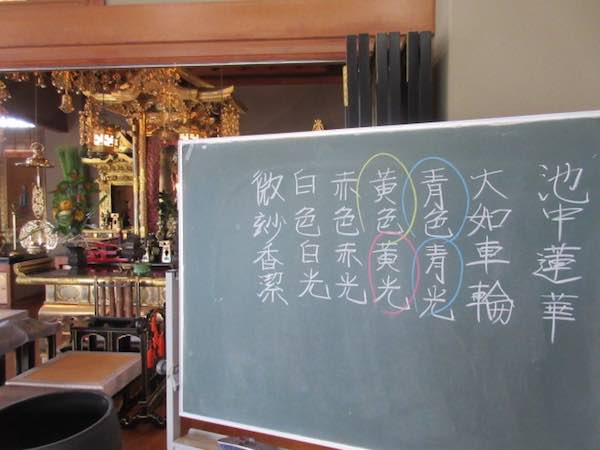 池中蓮華
大如車輪
青色青光
黄色黄光
赤色赤光
白色白光
微妙香潔